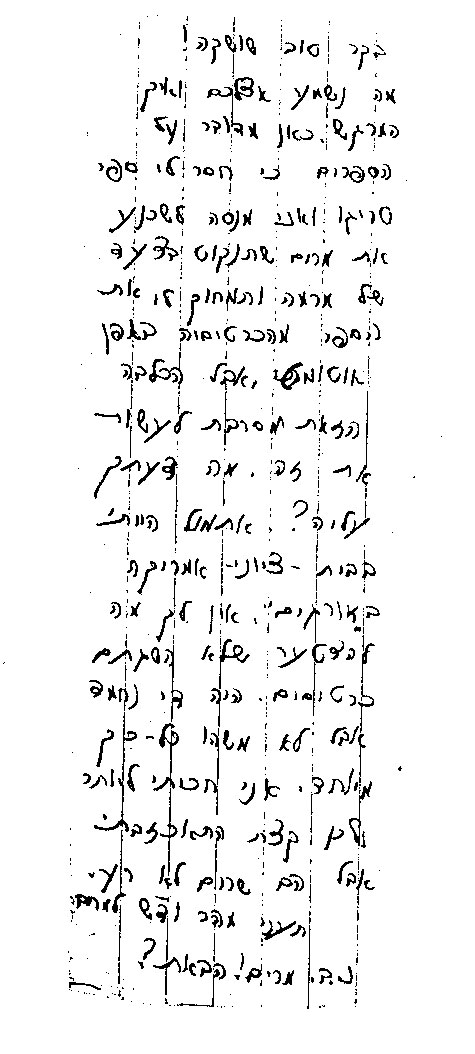 בקר טוב שושקה!
מה נשמע אצלכם ואיך
המרגש. כאן מדובר על
הספרים כי חסר לי ספר
טריגו ואני מנסה לשכנע
את מרים שתנקוט בצעד
של מרמה ותמחוק לי את
הספר מהכרטיסיה באפן
אוטומטי, אבל הכלבה
הזאת מסרבת לעשות
את זה. מה דעתך
עליה? אתמול הייתי
בבית - ציוני - אמריקה
ב"אורקים". אין לך מה
להצטער שלא השגתם
כרטיסים. היה די נחמד
אבל לא משהו כל-כך
מיוחד. אני חכיתי ליותר
ולכן קצת התאכזבתי
אבל הם שרים לא רע.
תעני מהר ודש למרים
נ.ב. מרים! הבאת?